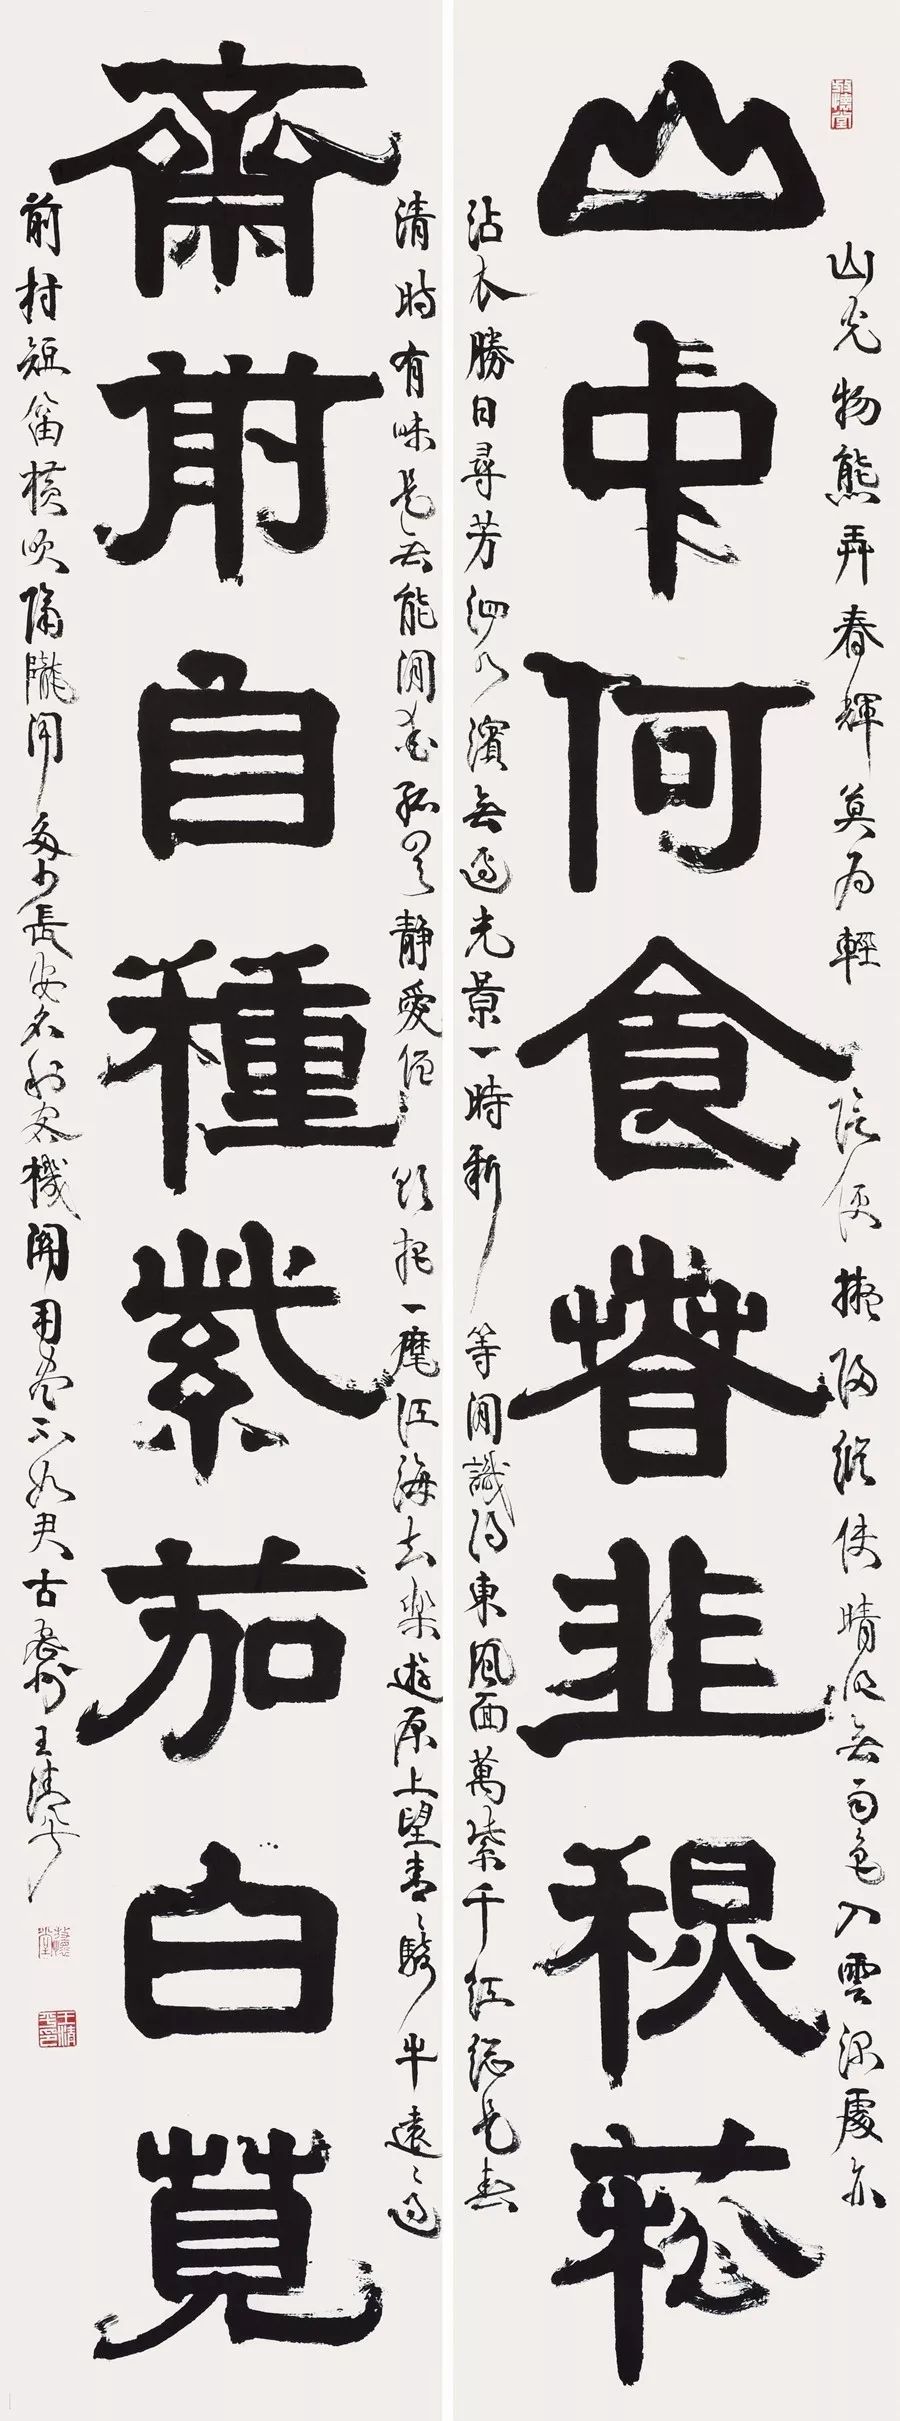 放懷堂
山光物態弄春輝莫為輕陰便擬歸縱使晴明無雨色入雲深處亦
山中何食萅韭秋菘
沾衣勝日尋芳泗水濱無邊光景一時新等閒識得東風面萬紫千紅總是春
清時有味是無能閒愛孤雲靜愛僧欲把一麾江海去樂遊原上望騎牛遠〻過
齋前自種紫茄白莧
前村短笛橫吹隔隴聞多少長安名利客機關用盡不如君古州王清
放懷堂